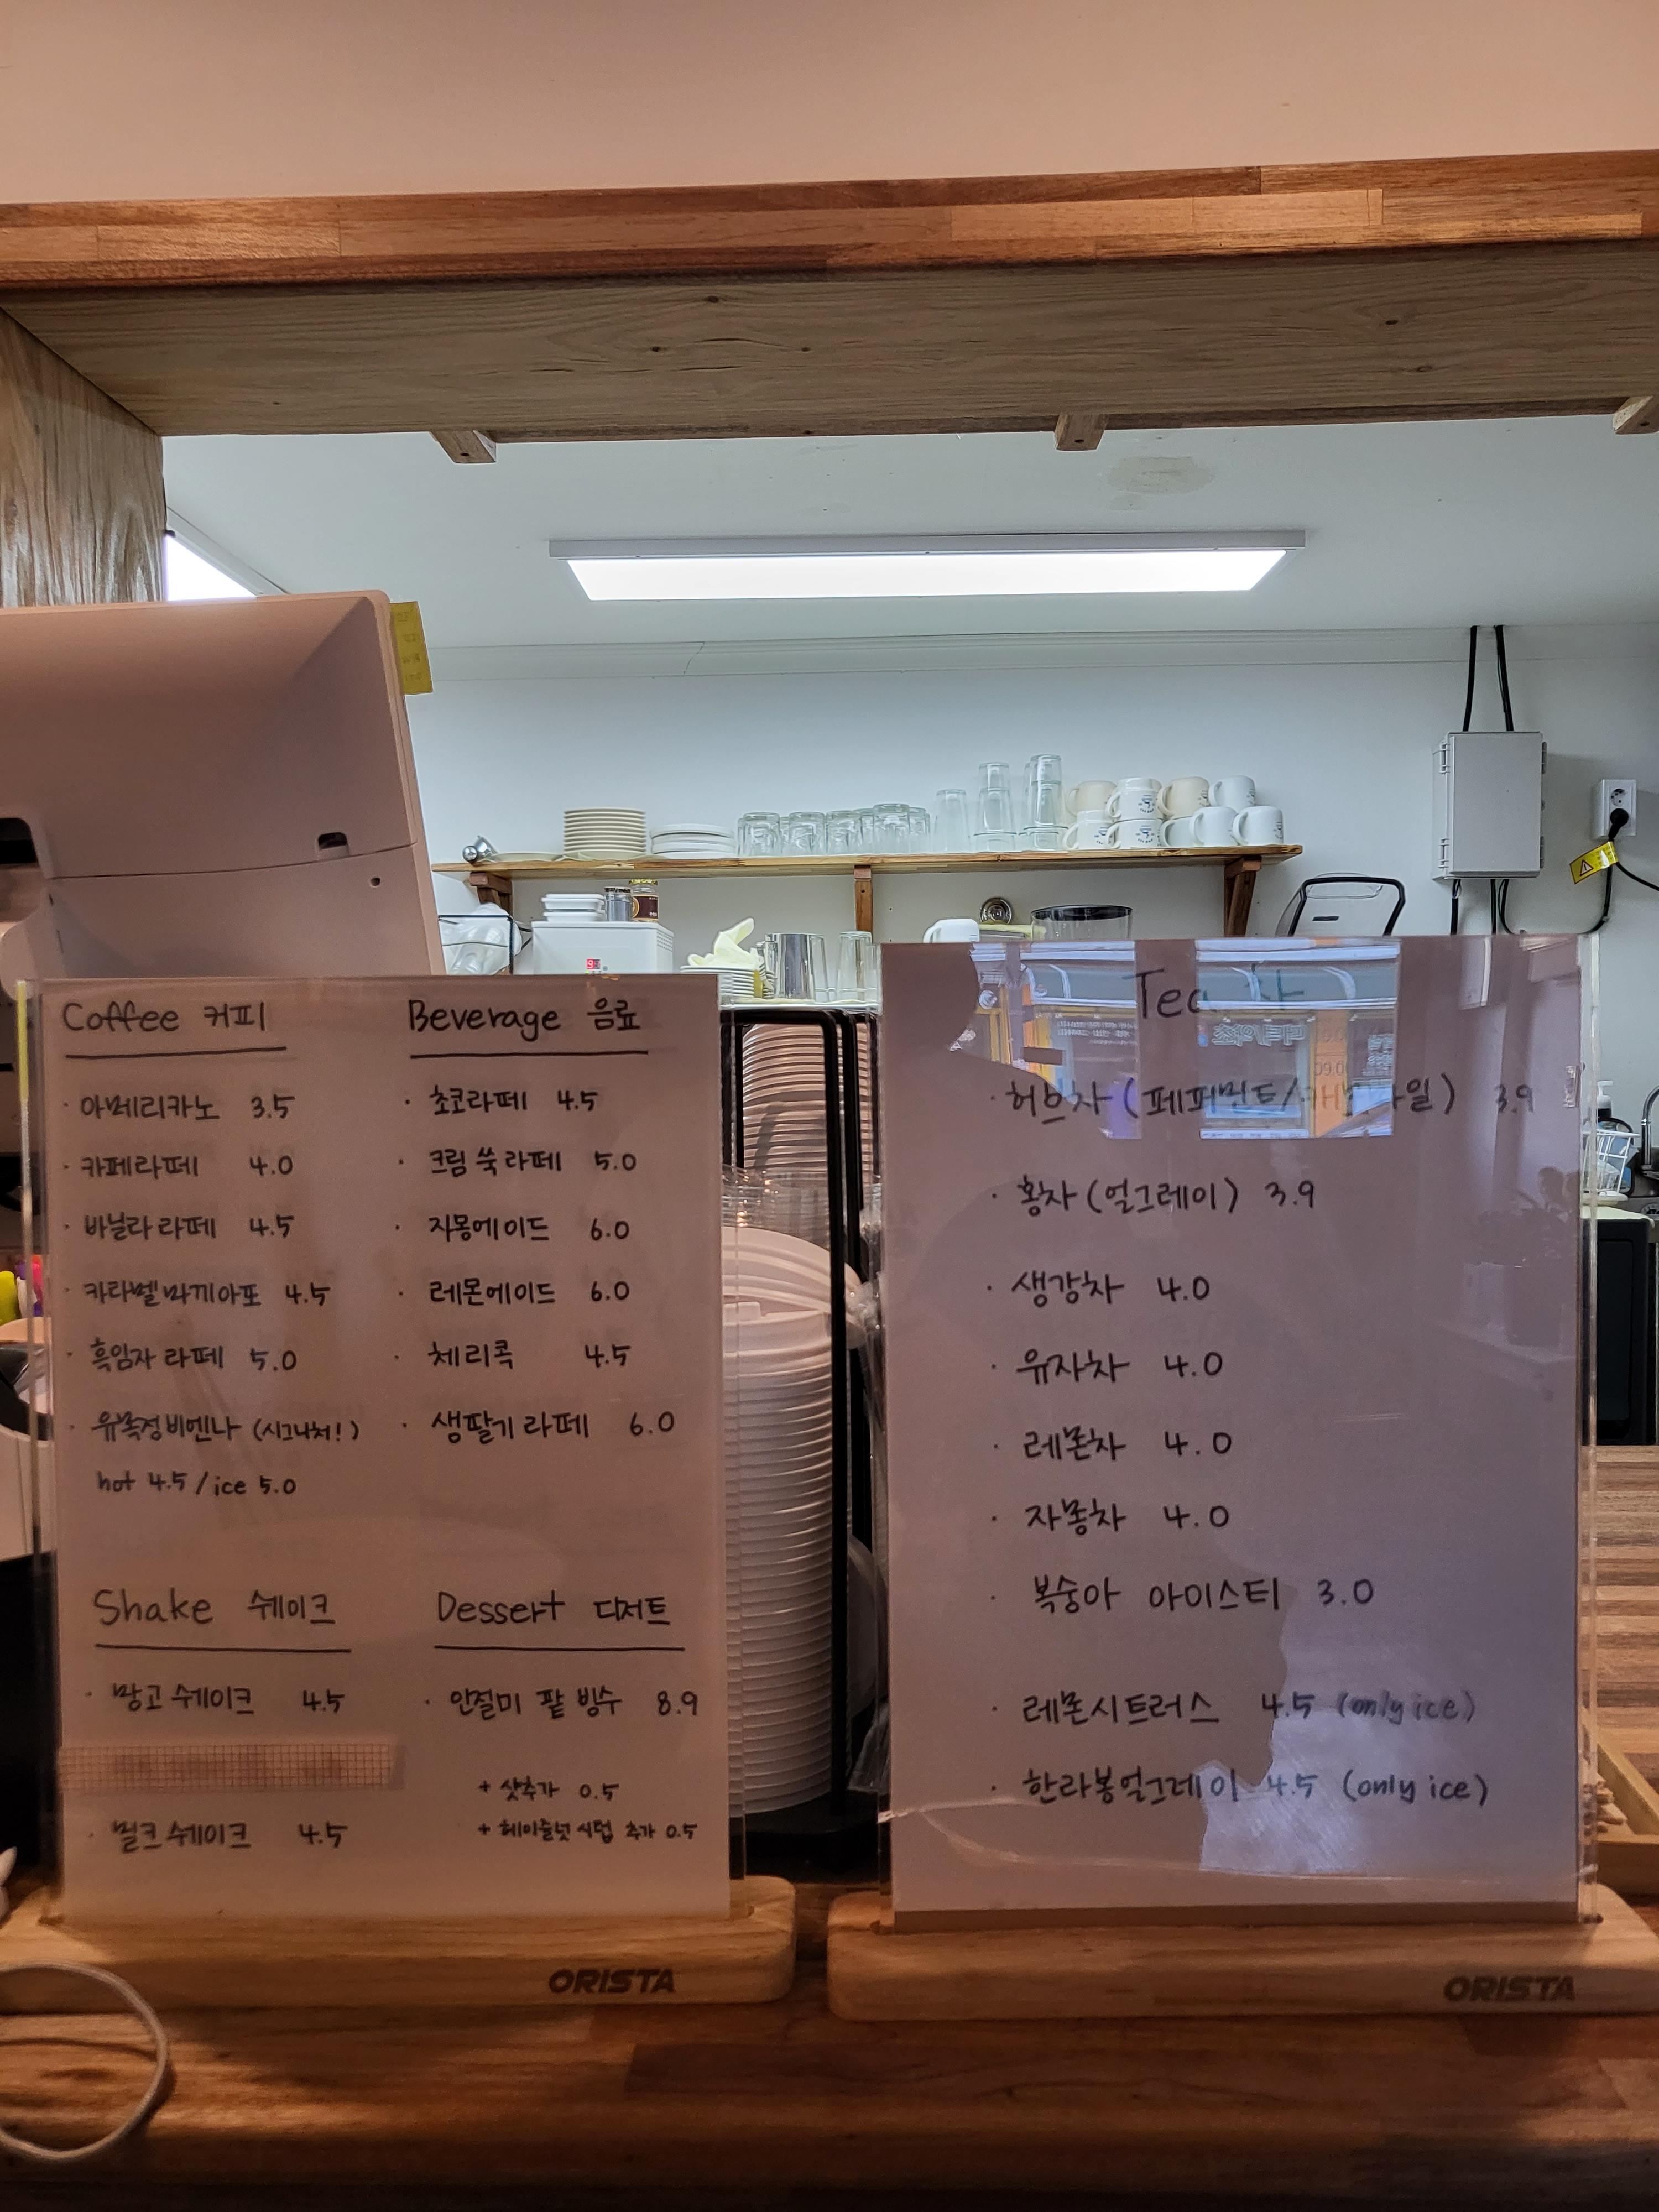 Coffee 커피
· 아메리카노 3.5
· 카페라떼 4.0
· 바닐라 라떼 4.5
· 카라멜 마끼아또 4.5
· 흑임자 라떼 5.0
· 유목정비엔나 (시그니처!)
hot 4.5 / ice 5.0
Beverage 음료
· 초코라떼 4.5
· 크림 쑥 라떼 5.0
· 자몽에이드 6.0
· 레몬에이드 6.0
· 체리콕 4.5
· 생딸기 라떼 6.0
Shake 쉐이크
· 망고 쉐이크 4.5
· 밀크 쉐이크 4.5
Dessert 디저트
· 인절미 팥 빙수 8.9
+ 샷추가 0.5
+ 헤이즐넛 시럽 추가 0.5
ORISTA
Tea 차
· 허브차 (페퍼민트/캐모마일) 3.9
· 홍차 (얼그레이) 3.9
· 생강차 4.0
· 유자차 4.0
· 레몬차 4.0
· 자몽차 4.0
· 복숭아 아이스티 3.0
· 레몬시트러스 4.5 (only ice)
· 한라봉얼그레이 4.5 (only ice)
ORISTA